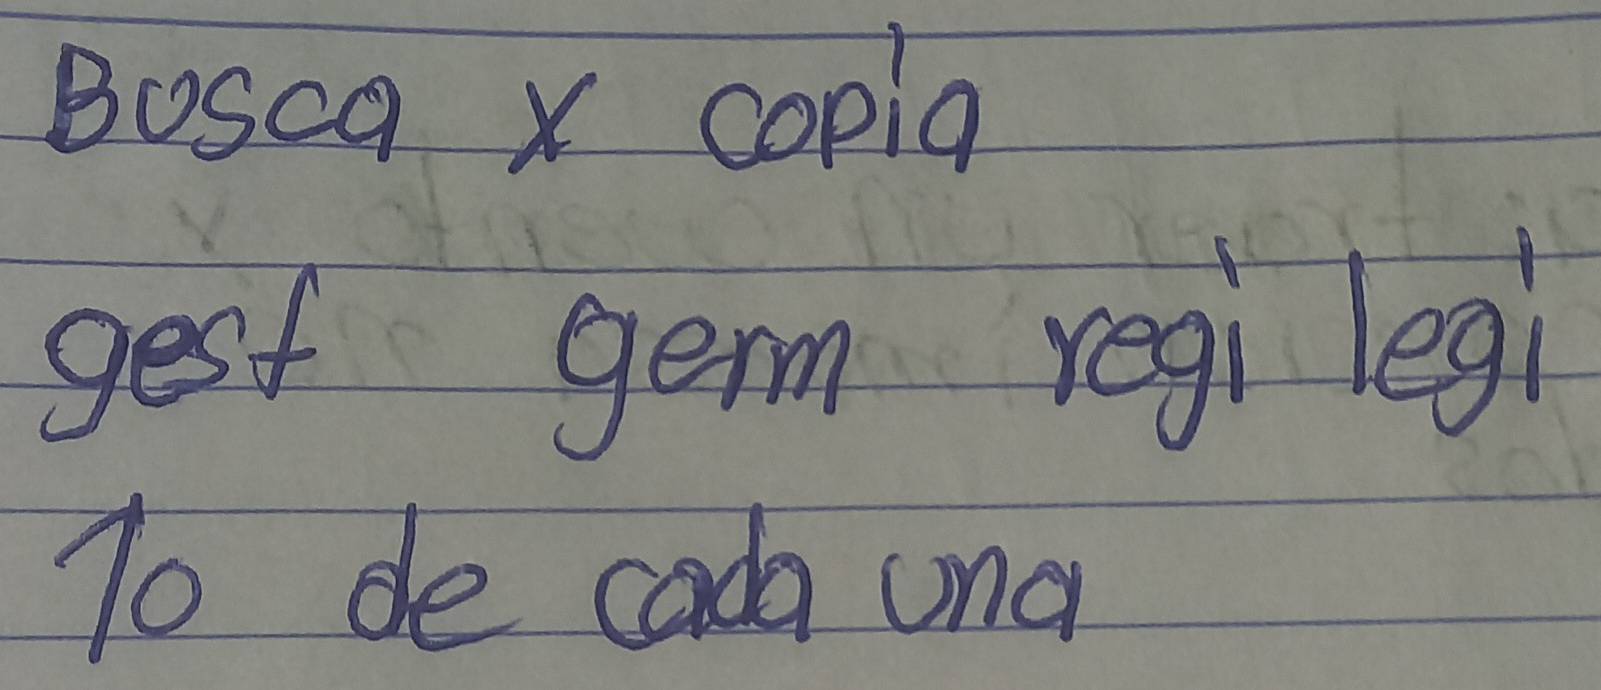 Busca x copia
gest germ regi legi
10 de cada una